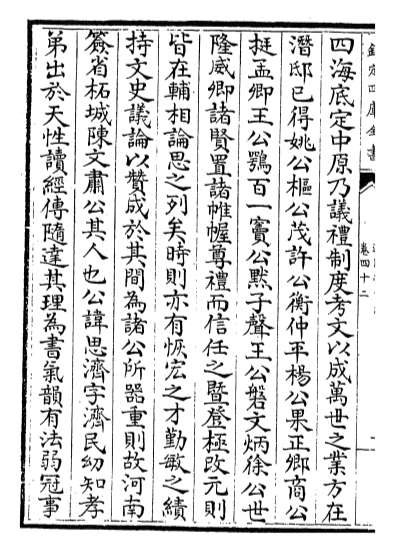 欽定四庫全書
卷四十二
四海底定中原乃議禮制度考文以成萬世之業方在
潛邸已得姚公樞公茂許公衡仲平楊公果正卿商公
挺孟卿王公鶚百一竇公默子聲王公磐文炳徐公世
隆威卿諸賢置諸帷幄尊禮而信任之暨登極改元則
皆在輔相論思之列矣時則亦有恢宏之才勤敏之績
持文史議論以贊成於其間為諸公所器重則故河南
簽省柘城陳文肅公其人也公諱思濟字濟民幼知孝
弟出於天性讀經傳隨達其理為書氣韻有法弱冠事